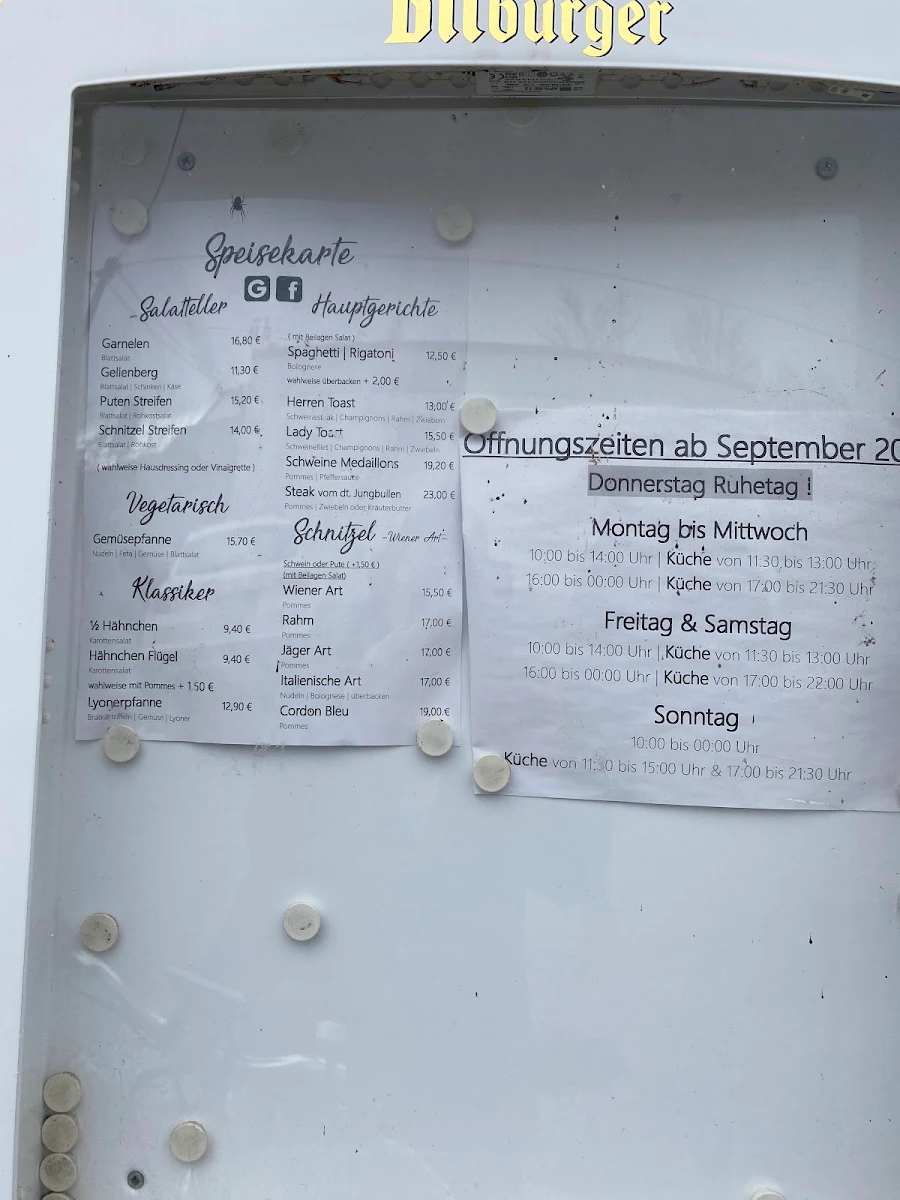 Bitburger
Speisekarte
G f
Salatteller
Garnelen 16,80 €
Blattsalat
Gellenberg 11,30 €
Blattsalat | Schinken | Käse
Puten Streifen 15,20 €
Blattsalat | Rohkostsalat
Schnitzel Streifen 14,00 €
Blattsalat | Rohkost
( wahlweise Hausdressing oder Vinaigrette )
Vegetarisch
Gemüsepfanne 15,70 €
Nudeln | Feta | Gemüse | Blattsalat
Klassiker
½ Hähnchen 9,40 €
Karottensalat
Hähnchen Flügel 9,40 €
Karottensalat
wahlweise mit Pommes + 1,50 €
Lyonerpfanne 12,90 €
Bratkartoffeln | Gemüse | Lyoner
Hauptgerichte
( mit Beilagen Salat )
Spaghetti | Rigatoni 12,50 €
Bolognese
wahlweise überbacken + 2,00 €
Herren Toast 13,00 €
Schweinesteak | Champignons | Rahm | Zwiebeln
Lady Toast 15,50 €
Schweinefilet | Champignons | Rahm | Zwiebeln
Schweine Medaillons 19,20 €
Pommes | Pfeffersauce
Steak vom dt. Jungbullen 23,00 €
Pommes | Zwiebeln oder Kräuterbutter
Schnitzel -Wiener Art-
Schwein oder Pute ( +1,50 € )
(mit Beilagen Salat)
Wiener Art 15,50 €
Pommes
Rahm 17,00 €
Pommes
Jäger Art 17,00 €
Pommes
Italienische Art 17,00 €
Nudeln | Bolognese | überbacken
Cordon Bleu 19,00 €
Pommes
Öffnungszeiten ab September 20
Donnerstag Ruhetag !
Montag bis Mittwoch
10:00 bis 14:00 Uhr | Küche von 11:30 bis 13:00 Uhr
16:00 bis 00:00 Uhr | Küche von 17:00 bis 21:30 Uhr
Freitag & Samstag
10:00 bis 14:00 Uhr | Küche von 11:30 bis 13:00 Uhr
16:00 bis 00:00 Uhr | Küche von 17:00 bis 22:00 Uhr
Sonntag
10:00 bis 00:00 Uhr
Küche von 11:30 bis 15:00 Uhr & 17:00 bis 21:30 Uhr